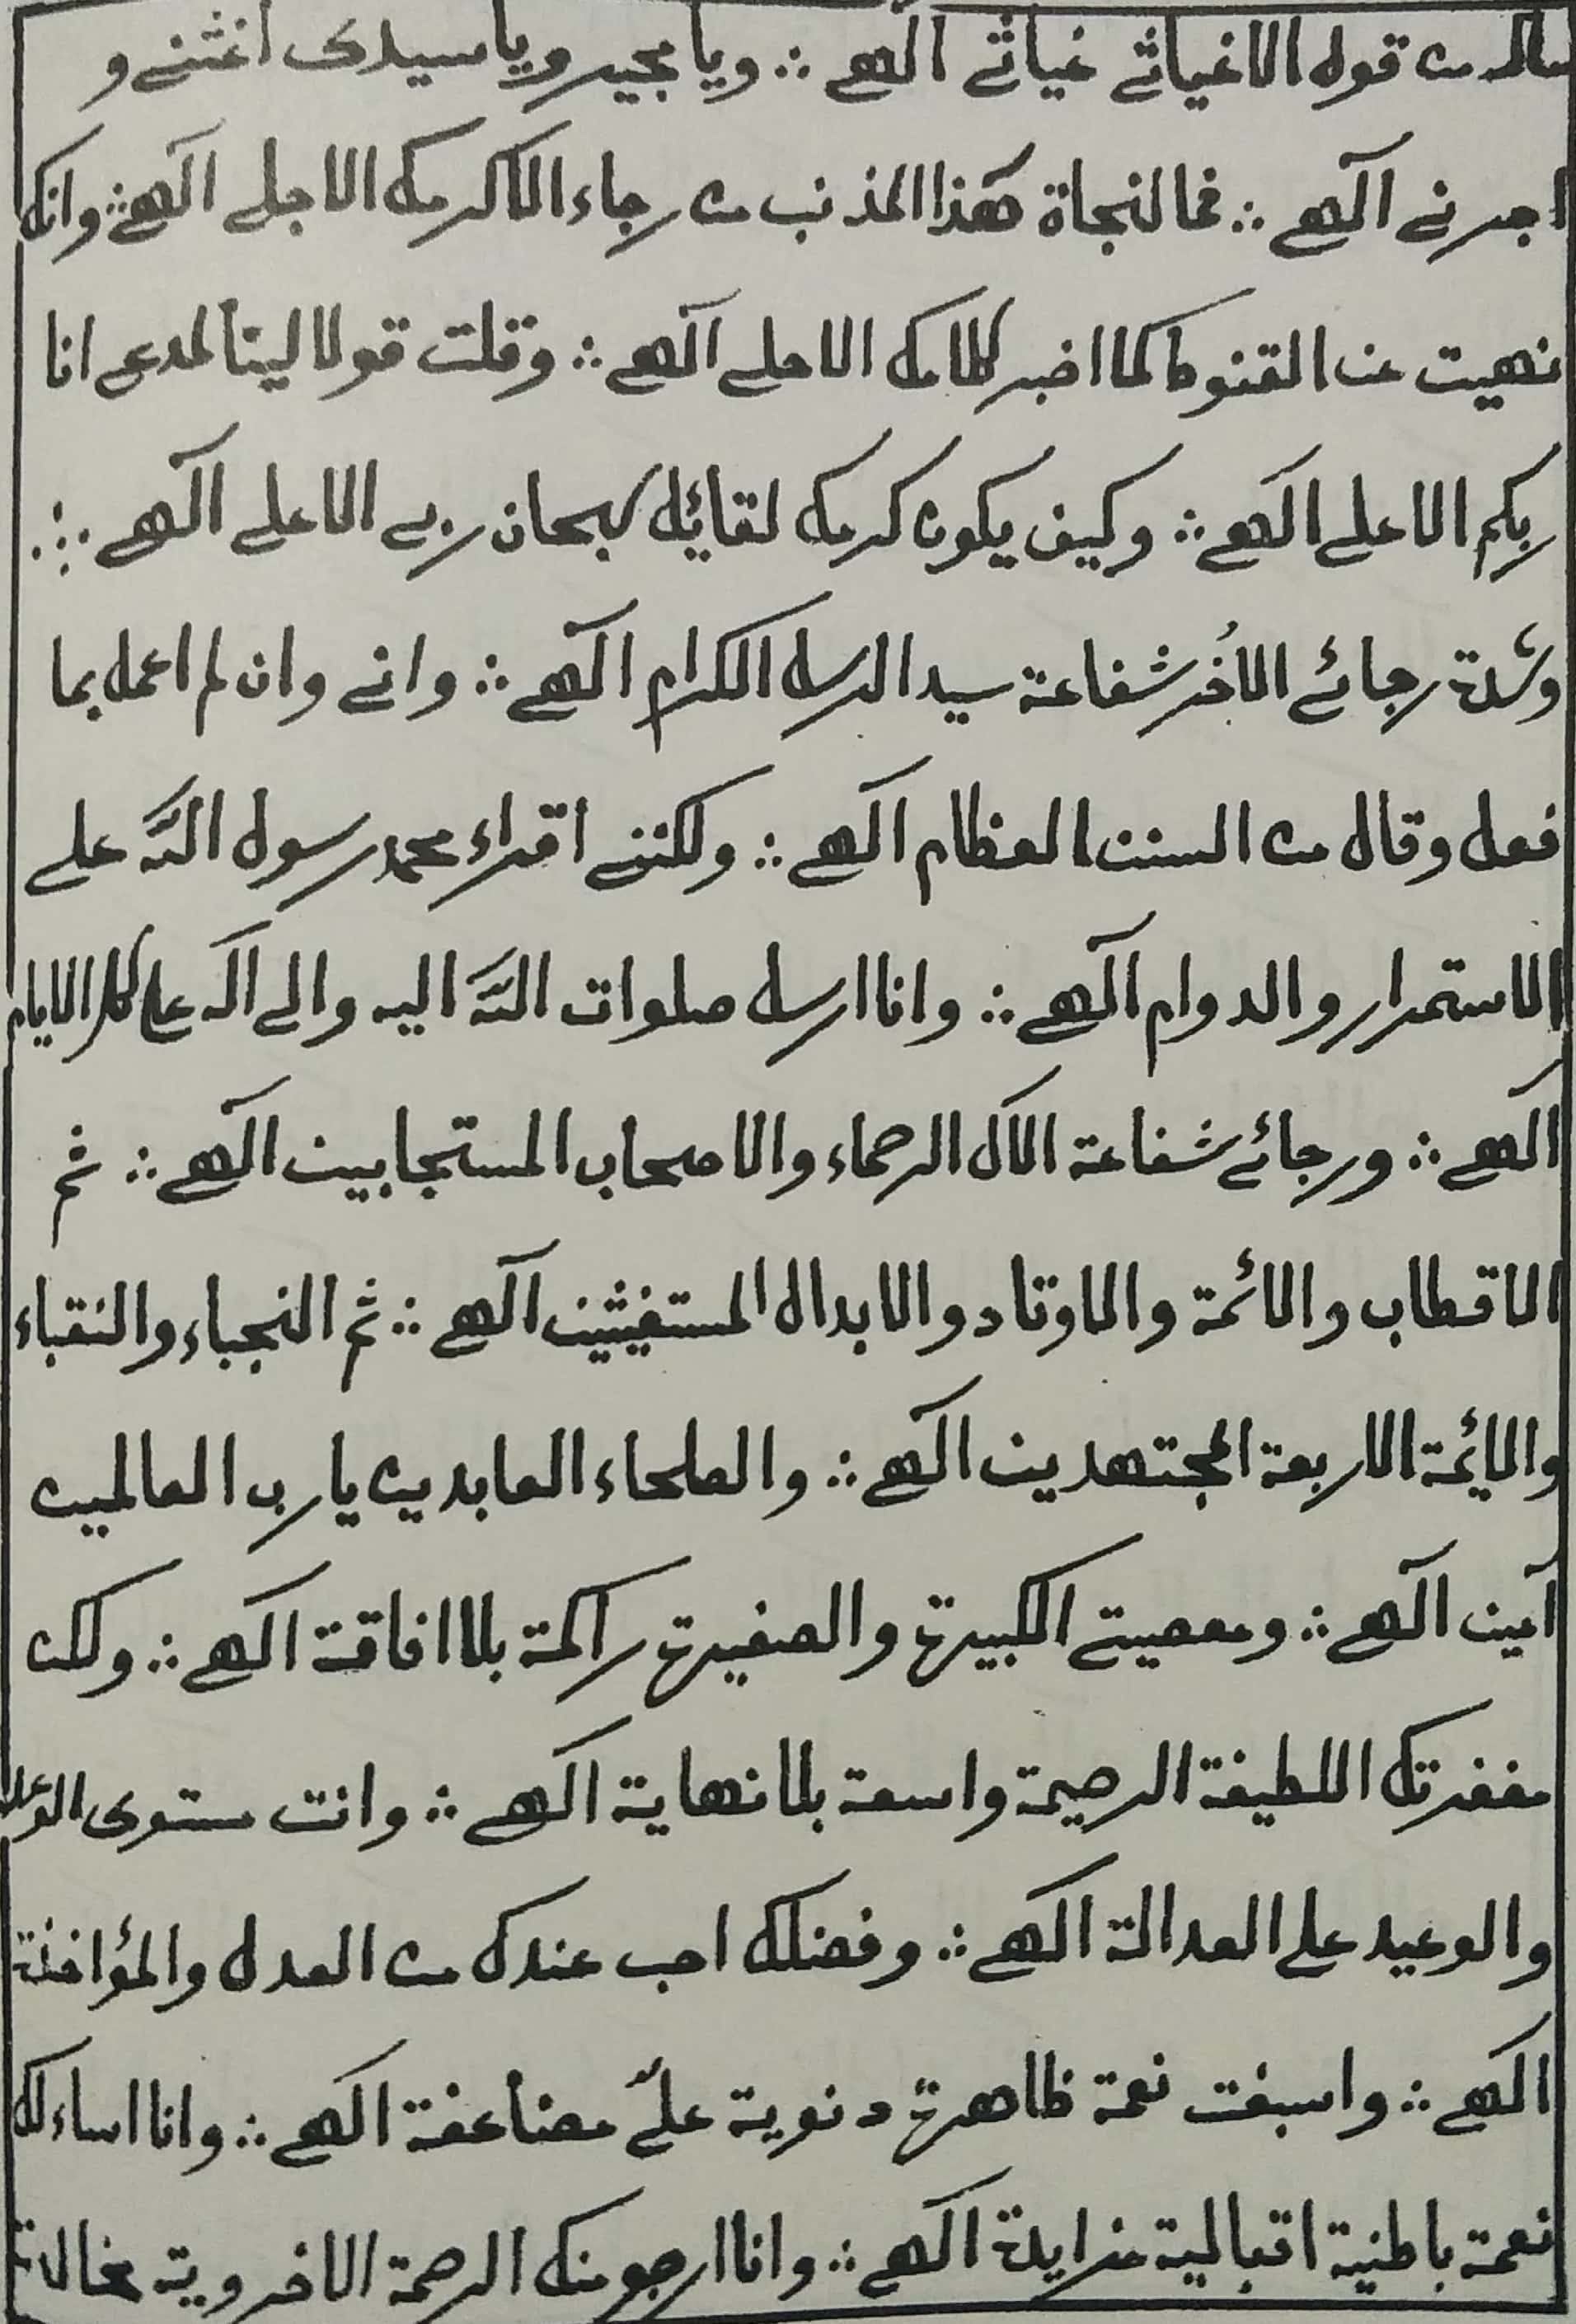 سالمہ من قول الا غیاثے غیاثے الٰھے ؞ ویا مجیر ویا سیدی اغثنے و
اجرنے الٰھے ؞ فما لنجاة ھٰذا المذنب من رجاء الا کرمک الاجلے الٰھے ؞ وانک
نھیت عن القنوط کما اخبر کلامک الاحلے الٰھے ؞ وقلت قولا لینا لمدعی انا
ربکم الاعلے الٰھے ؞ وکیف یکون کرمک لقائل سبحان ربے الاعلے الٰھے ؞
وشدة رجائے الأُخر شفاعة سید الرسل الکرام الٰھے ؞ وانے وان لم اعمل بما
فعل وقال من السنن العظام الٰھے ؞ ولکننے اقراء محمد رسول اللّٰہ علے
الاستمرار والدوام الٰھے ؞ وانا ارسل صلوات اللّٰہ الیہ والے اٰلہ علے کل الایام
الٰھے ؞ ورجائے شفاعة الاٰل الرحماء والاصحاب المستجابین الٰھے ؞ ثم
الاقطاب والائمة والاوتاد والابدال المستغیثین الٰھے ؞ ثم النجباء والنقباء
والائمة الاربعة المجتھدین الٰھے ؞ والصلحاء العابدین یا رب العالمین
اٰمین الٰھے ؞ ومعصیتے الکبیرة والصغیرة راکمة بلا افاقة الٰھے ؞ ولکن
مغفرتک اللطیفة الرحیمة واسعة بلا نھایة الٰھے ؞ وانت مستوی الوعد
والوعید علے العدالة الٰھے ؞ وفضلک احب عندک من العدل والمؤاخذة
الٰھے ؞ واسبغت نعمة ظاھرة دنویة علےّ مضاعفة الٰھے ؞ وانا اساءلک
نعمة باطنیة اقبالیة مزایدة الٰھے ؞ وانا ارجو منک الرحمة الاخرویة